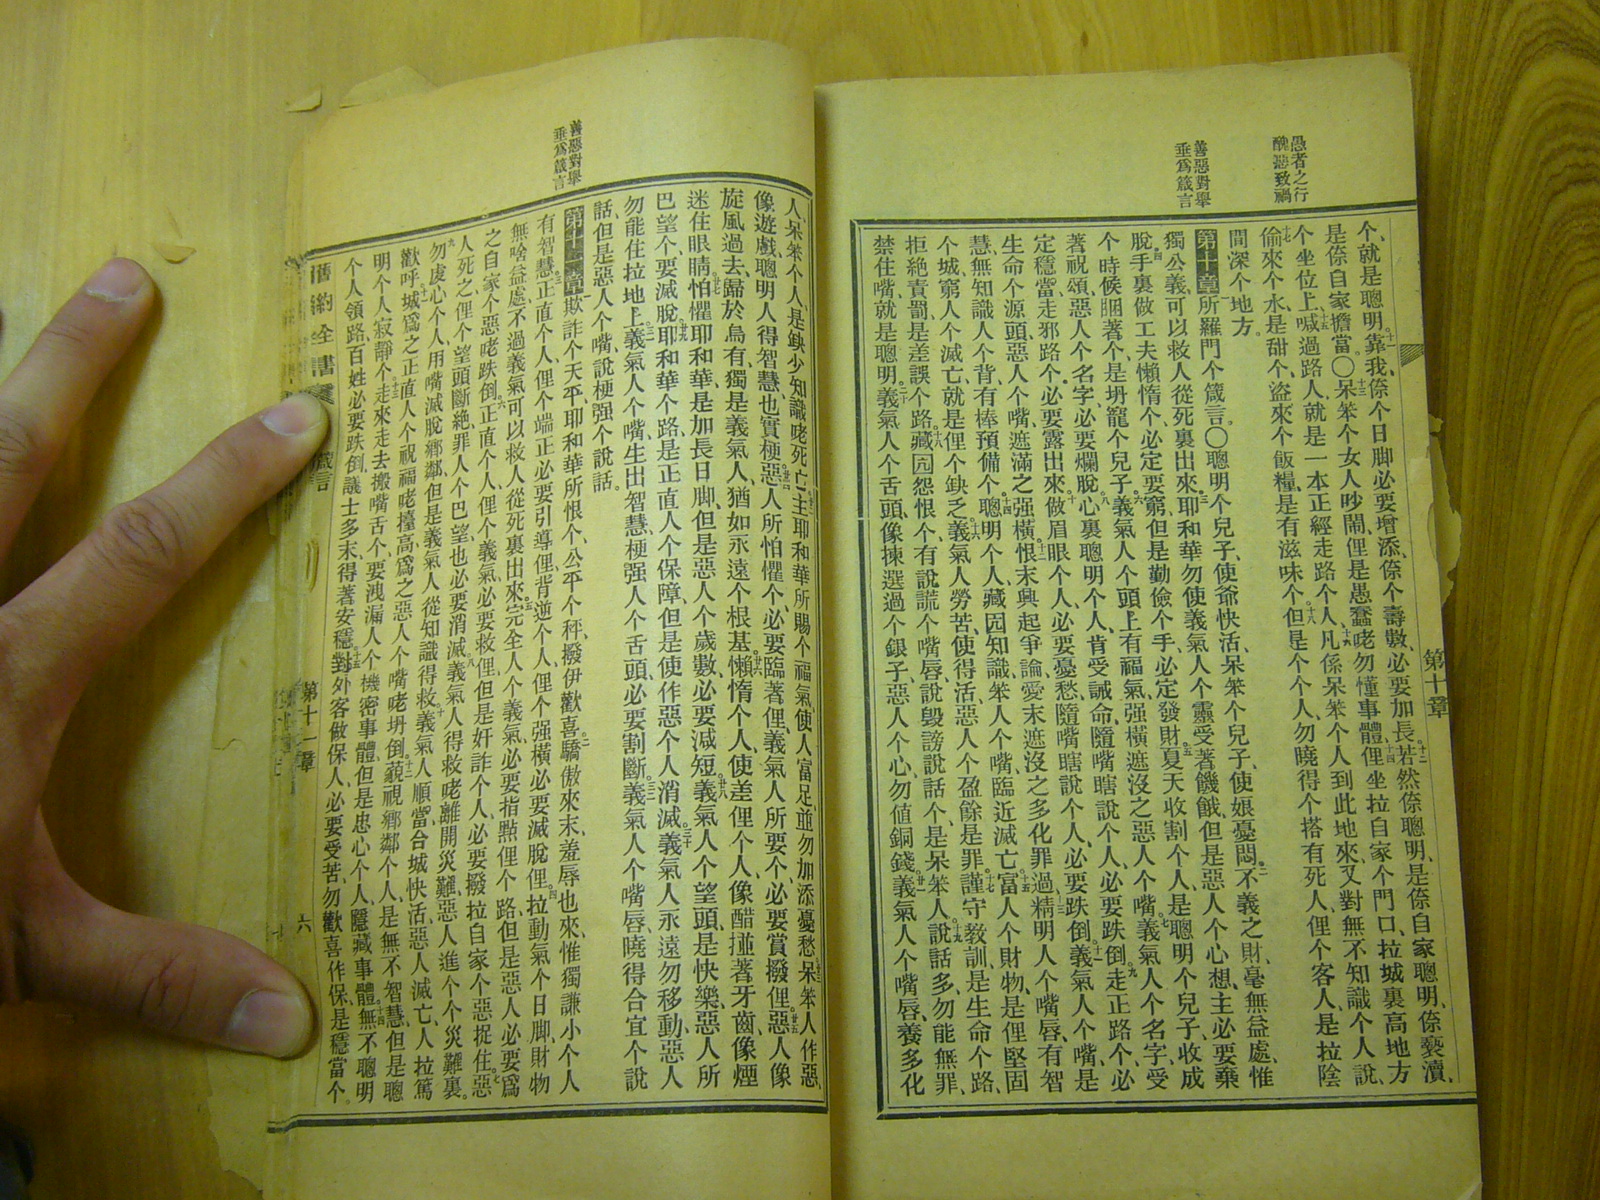 愚者之行
醜惡致禍
善惡對舉
垂爲箴言
第十章
个、就是聰明、靠我、倷个日脚必要增添、倷个壽數、必要加長、若然倷聰明、是倷自家聰明、倷褻瀆、
是倷自家擔當。〇呆笨个女人吵鬧、俚是愚蠢咾勿懂事體、俚坐拉自家个門口、拉城裏高地方
个坐位上、喊過路人、就是一本正經走路个人、凡係呆笨个人到此地來、又對無不知識个人說、
偷來个水、是甜个、盜來个飯糧、是有滋味个、但是个个人、勿曉得个搭有死人、俚个客人、是拉陰
間深个地方。
第十章 所羅門个箴言。〇聰明个兒子、使爺快活、呆笨个兒子、使娘憂悶、不義之財、毫無益處、惟
獨公義可以救人從死裏出來、耶和華勿使義氣人个靈受著饑餓、但是惡人个心想、主必要棄
脫、手裏做工夫懶惰个、必定要窮、但是勤儉个手、必定發財、夏天收割个人、是聰明个兒子、收成
个時候睏著个、是坍籠个兒子、義氣人个頭上有福氣、强橫遮沒之惡人个嘴、義氣人个名字、受
著祝頌、惡人个名字、必要爛脫、心裏聰明个人、肯受誡命、隨嘴瞎說个人、必要跌倒、走正路个、必
定穩當、走邪路个、必要露出來、做眉眼个人、必要憂愁、隨嘴瞎說个人、必要跌倒、義氣人个嘴、是
生命个源頭、惡人个嘴、遮滿之强橫、恨末興起爭論、愛末遮沒之多化罪過、精明人个嘴唇、有智
慧、無知識人个背、有棒預備个、聰明个人、藏囥知識、笨人个嘴、臨近滅亡、富人个財物、是俚堅固
个城、窮人个滅亡、就是俚个缺乏、義氣人勞苦、使得活、惡人个盈餘、是罪、謹守教訓、是生命个路、
拒絶責罰、是差誤个路、藏囥怨恨个、有說謊个嘴唇、說毀謗說話个、是呆笨人、說話多、勿能無罪、
禁住嘴、就是聰明、義氣人个舌頭、像揀選過个銀子、惡人个心、勿值銅錢、義氣人个嘴唇、養多化
善惡對舉
垂爲箴言
人、呆笨个人、是缺少知識咾死亡、主耶和華所賜个福氣、使人富足、並勿加添憂愁、呆笨人作惡、
像遊戲、聰明人得智慧也實梗、惡人所怕懼个、必要臨著俚、義氣人所要个、必要賞撥俚、惡人像
旋風過去、歸於烏有、獨是義氣人、猶如永遠个根基、懶惰个人、使差俚个人、像醋㨃著牙齒、像煙
迷住眼睛、怕懼耶和華、是加長日脚、但是惡人个歲數、必要減短、義氣人个望頭、是快樂、惡人所
巴望个、要滅脫、耶和華个路、是正直人个保障、但是使作惡个人消滅、義氣人、永遠勿移動、惡人
勿能住拉地上、義氣人个嘴、生出智慧、梗强人个舌頭、必要割斷、義氣人个嘴唇、曉得合宜个說
話、但是惡人个嘴、說梗强个說話。
第十一章 欺詐个天平、耶和華所恨个、公平个秤、撥伊歡喜、驕傲來末、羞辱也來、惟獨謙小个人
有智慧、正直个人、俚个端正、必要引導俚、背逆个人、俚个强橫、必要滅脫俚、拉動氣个日脚、財物
無啥益處、不過義氣可以救人從死裏出來、完全人个義氣、必要指點俚个路、但是惡人、必要爲
之自家个惡咾跌倒、正直个人、俚个義氣、必要救俚、但是奸詐个人、必要撥拉自家个惡捉住、惡
人死之、俚个望頭斷絶、罪人个巴望、也必要消滅、義氣人得救咾離開災難、惡人進个个災難裏、
勿虔心个人、用嘴滅脫鄉鄰、但是義氣人、從知識得救、義氣人順當、合城快活、惡人滅亡、人拉篤
歡呼、城爲之正直人个祝福咾擡高、爲之惡人个嘴咾坍倒、藐視鄉鄰个人、是無不智慧、但是聰
明个人寂靜、个走來走去搬嘴舌个、要洩漏人个機密事體、但是忠心个人、隱藏事體、無不聰明
个人領路、百姓必要跌倒、議士多末、得著安穩、對外客做保人、必要受苦、勿歡喜作保、是穩當个、
舊約全書 箴言 第十一章 六